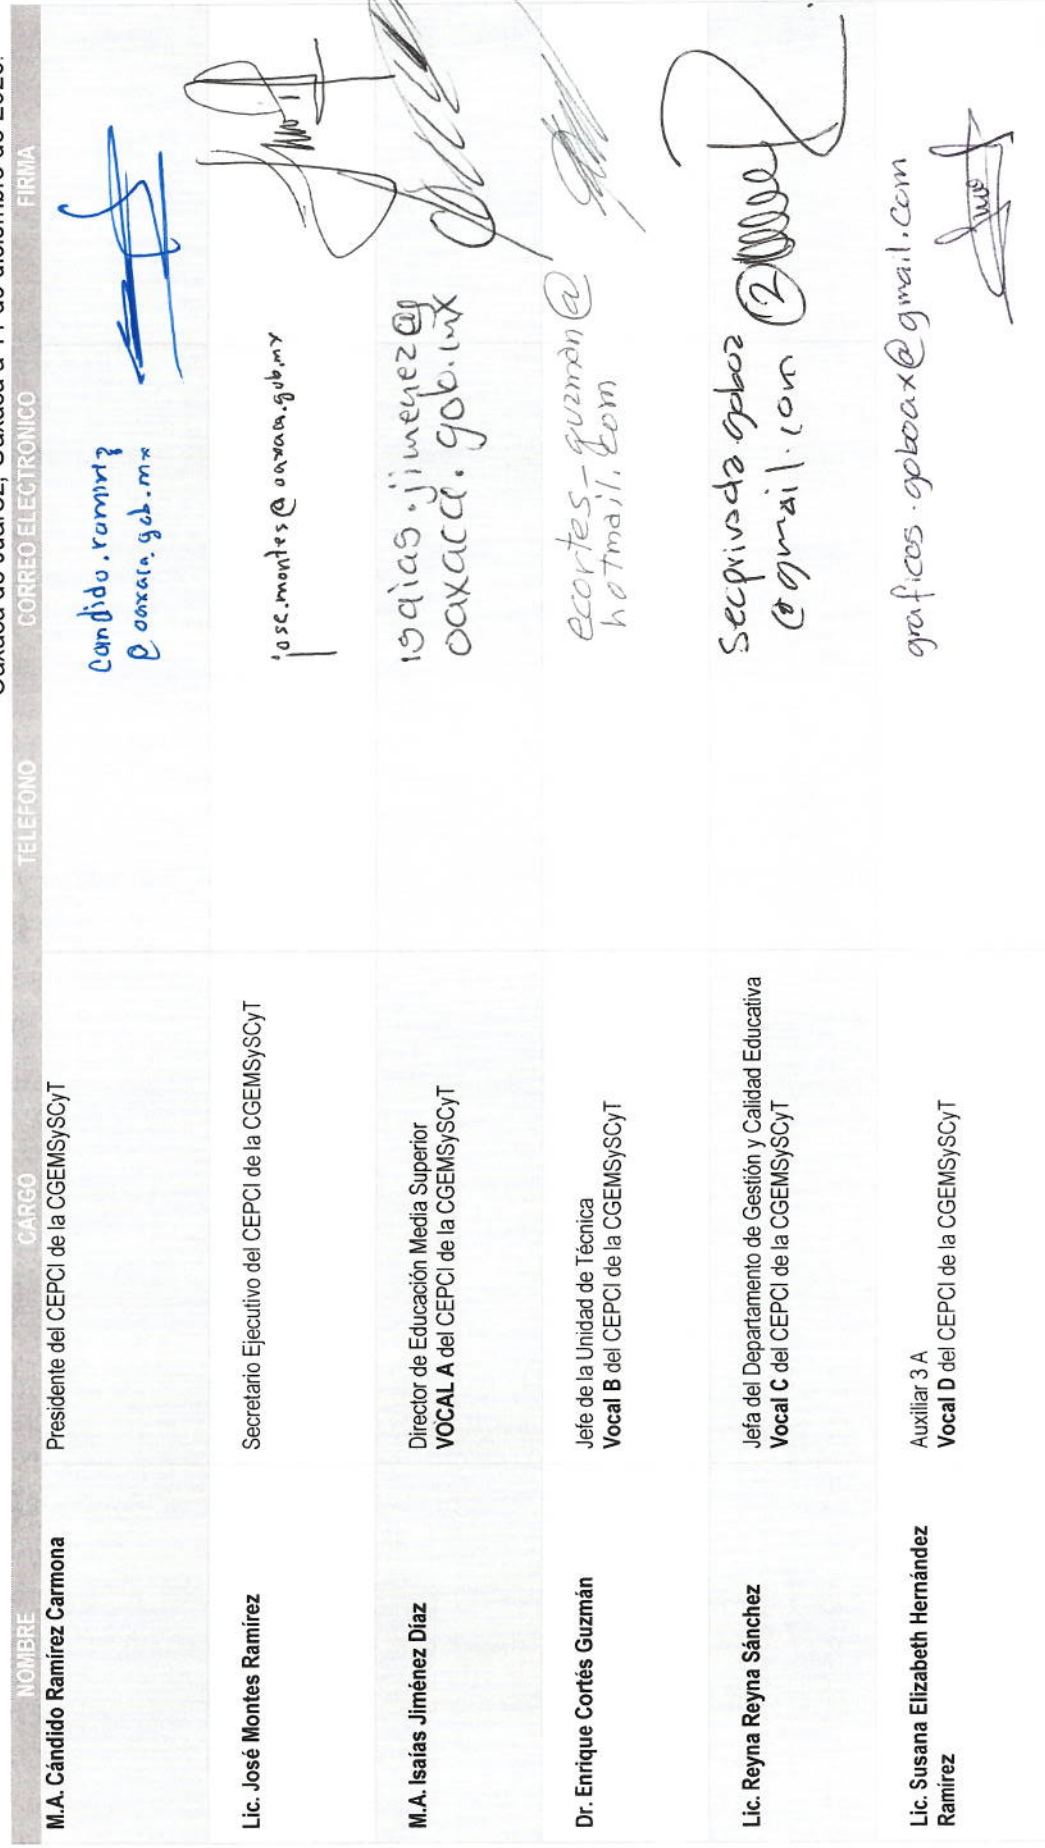 NOMBRE CARGO TELEFONO CORREO ELECTRONICO FIRMA
M.A. Cándido Ramírez Carmona
Presidente del CEPCI de la CGEMSySCyT
@oaxaca.gob.mx
Lic. José Montes Ramírez
Secretario Ejecutivo del CEPCI de la CGEMSySCyT
jose.montes@oaxaca.gob.mx
M.A. Isaías Jiménez Díaz
Director de Educación Media Superior
VOCAL A del CEPCI de la CGEMSySCyT
isaias.jimenez@
oaxaca.gob.mx
Dr. Enrique Cortés Guzmán
Jefe de la Unidad de Técnica
Vocal B del CEPCI de la CGEMSySCyT
ecortes_guzman@
hotmail.com
Lic. Reyna Reyna Sánchez
Jefa del Departamento de Gestión y Calidad Educativa
Vocal C del CEPCI de la CGEMSySCyT
@gmail.com
Lic. Susana Elizabeth Hernández
Ramírez
Auxiliar 3 A
Vocal D del CEPCI de la CGEMSySCyT
graficos.goboax@gmail.com